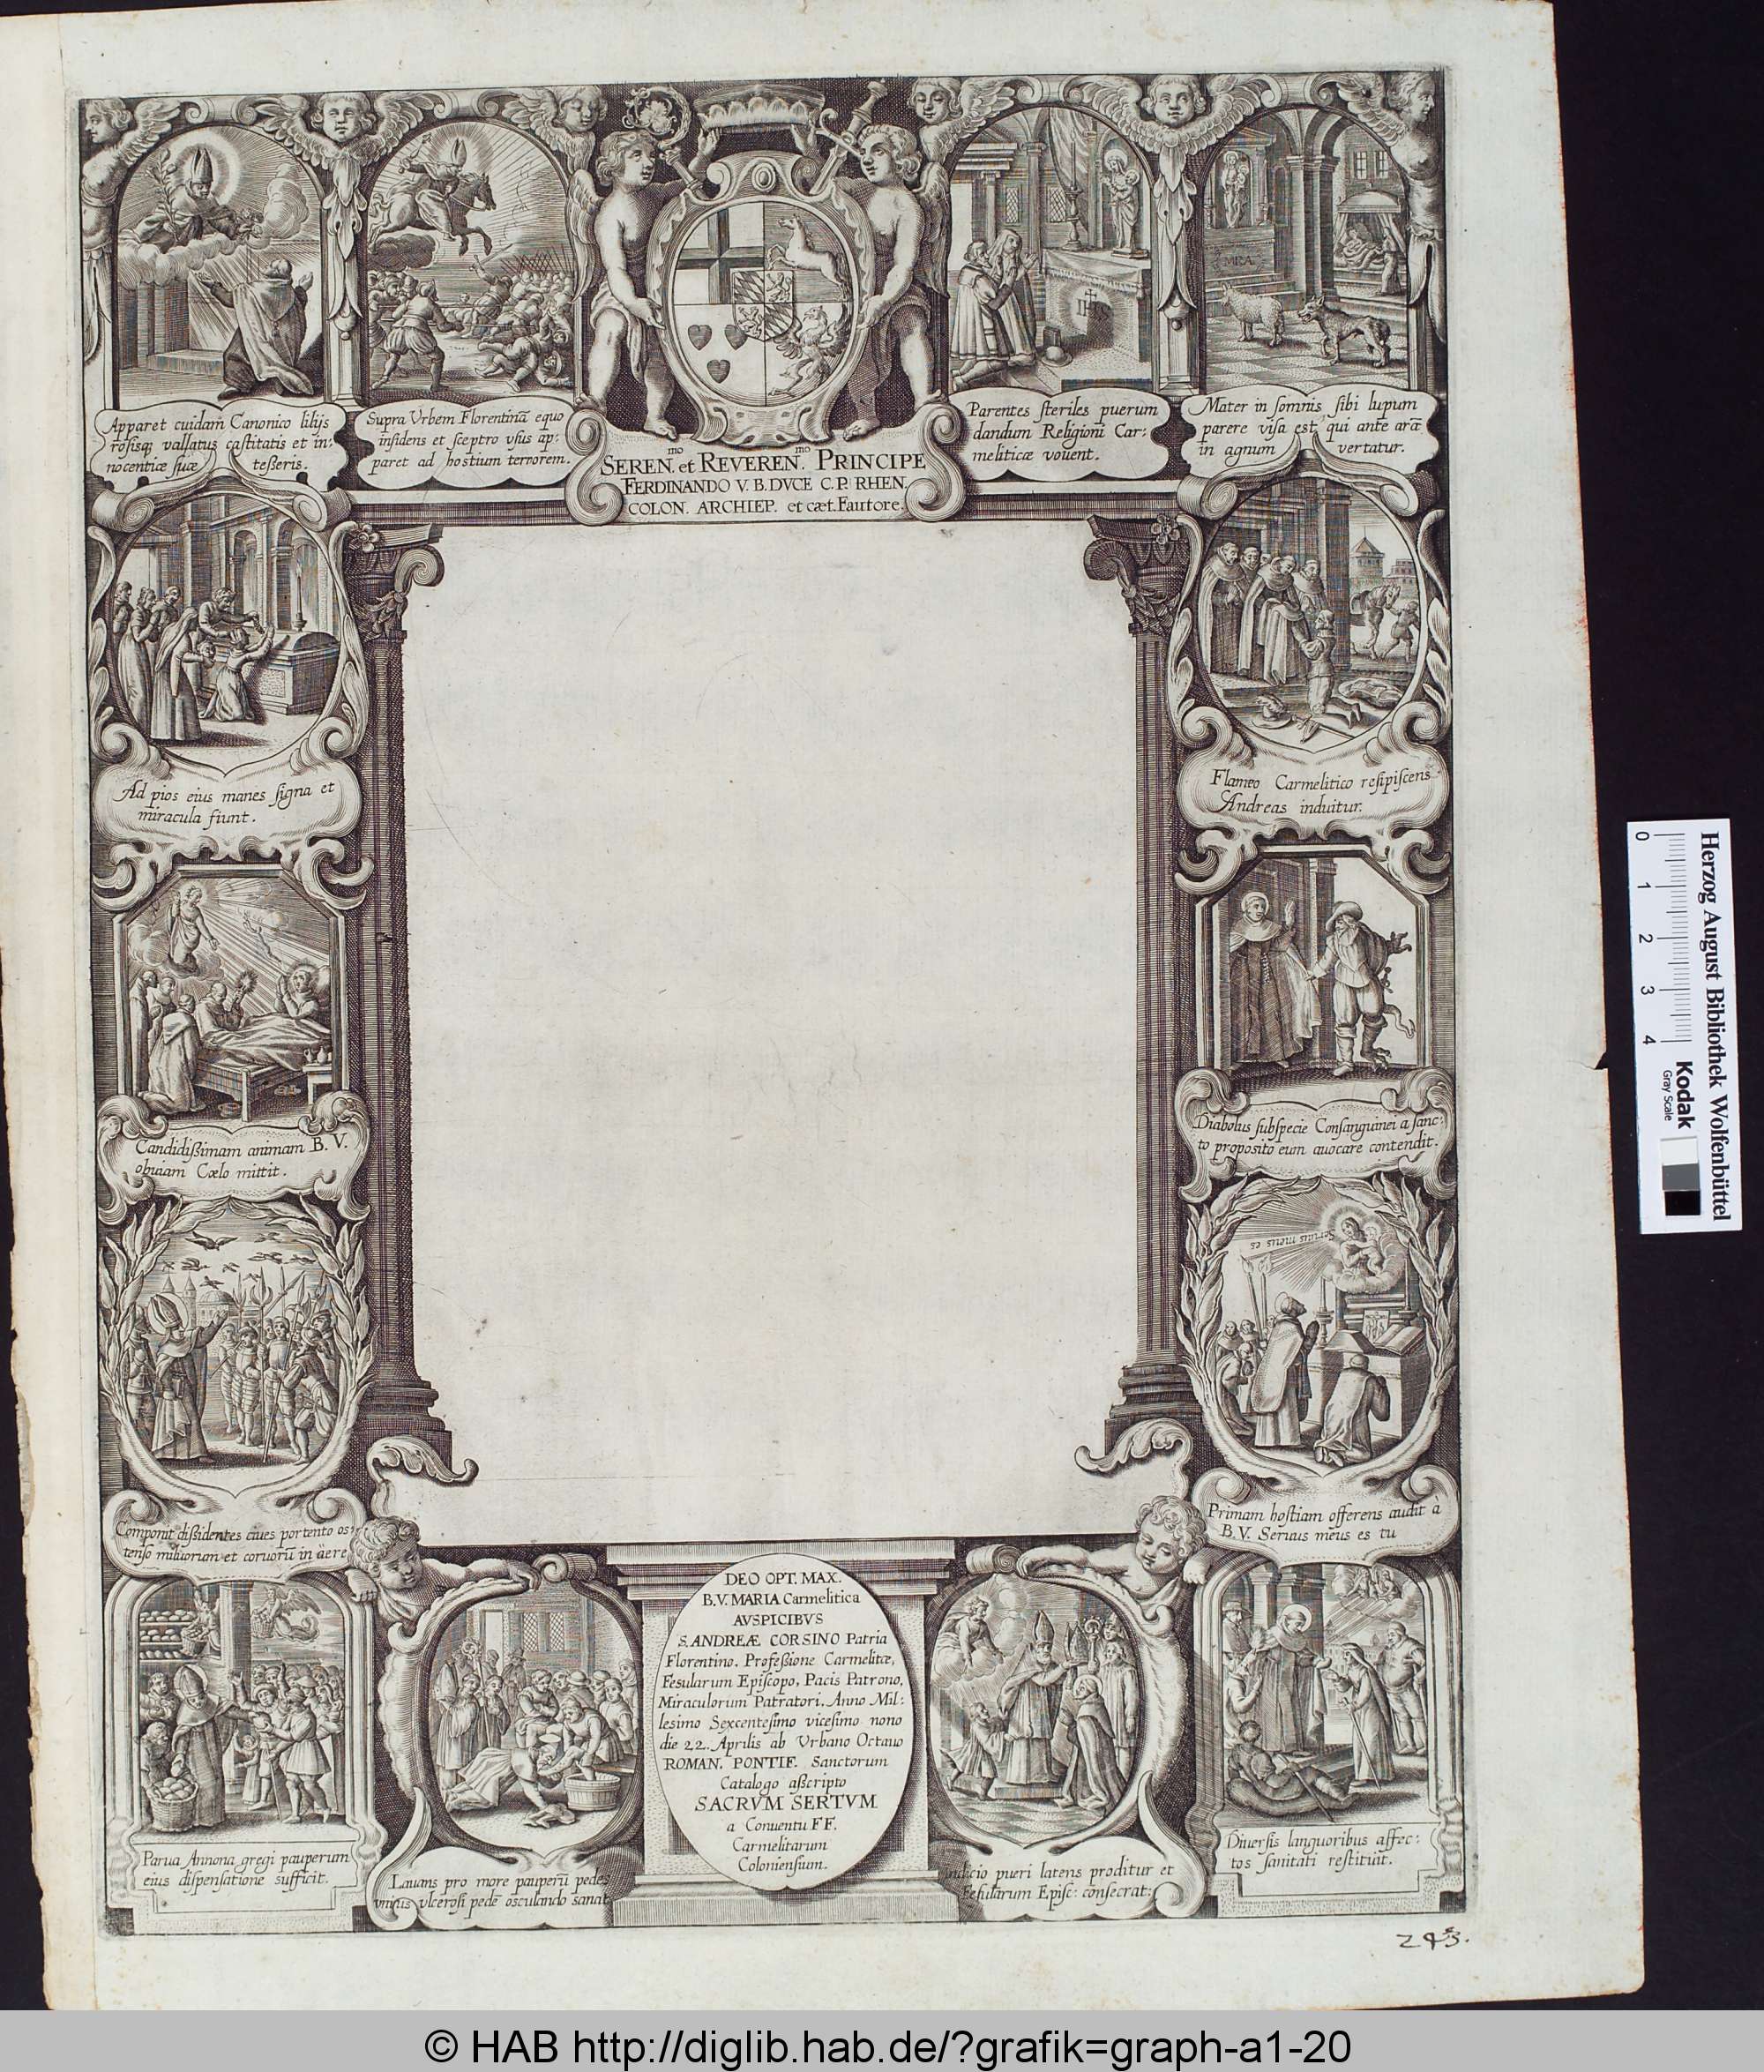 Apparet cuidam Canonico lilijs
rosisq; vallatus castitatis et in:
nocentiæ suæ teßeris.
Supra Urbem Florentinā equo
insidens et sceptro usus ap:
paret ad hostium terrorem.
SEREN.mo et REVEREN.mo PRINCIPE
FERDINANDO V. B. DVCE C. P. RHEN.
COLON. ARCHIEP. et cæt. Fautore.
IHS
Parentes steriles puerum
dandum Religioni Car:
meliticæ vouent.
MRA
Mater in somnis sibi lupum
parere visa est, qui ante arā
in agnum vertatur.
Ad pios eius manes signa et
miracula fiunt.
Flameo Carmelitico resipiscens
Andreas induitur.
Candidißimam animam B. V.
obuiam Cœlo mittit.
Diabolus sub specie Consanguinei a sanc:
to proposito eum auocare contendit.
Seruus meus es
Componit dißidentes ciues portento os:
tenso miluorum et coruorū in äere
Primam hostiam offerens audit à
B. V. Seruus meus es tu
Parua Annona gregi pauperum
eius dispensatione sufficit.
Lauans pro more pauperū pedes
vnius vlcerosi pedē osculando sanat
DEO OPT. MAX.
B. V. MARIA Carmelitica
AVSPICIBVS
S. ANDREÆ CORSINO Patria
Florentino, Profeßione Carmelitæ,
Fesularum Episcopo, Pacis Patrono,
Miraculorum Patratori, Anno Mil:
lesimo Sexcentesimo vicesimo nono
die 22. Aprilis ab Vrbano Octauo
ROMAN. PONTIF. Sanctorum
Catalogo aßcripto
SACRVM SERTVM
a Conuentu FF.
Carmelitarum
Coloniensium.
Indicio pueri latens proditur et
Fesularum Episc: consecrat:
Diuersis languoribus affec:
tos sanitati restituit.
243.
Herzog August Bibliothek Wolfenbüttel
0 1 2 3 4
Kodak
Gray Scale
© HAB http://diglib.hab.de/?grafik=graph-a1-20